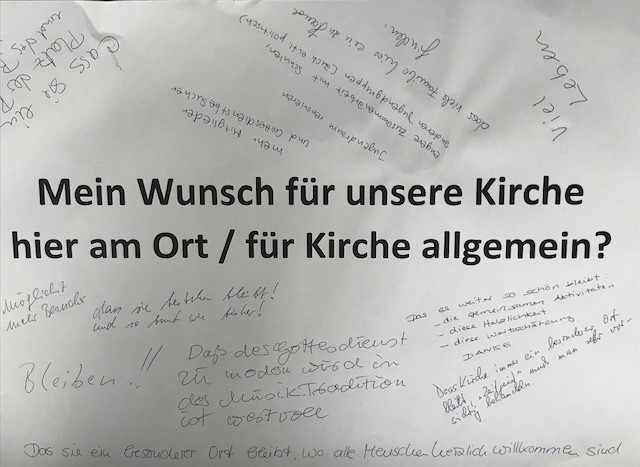 dass sie ein
Platz des
und des
Viel
Leben
dass viele Familien hier ein zu Hause
finden.
engere Zusammenarbeit mit
anderen Jugendgruppen (auch evtl. politisch)
Jugendraum renovieren
mehr Mitglieder
und Gottesdienstbesucher
Mein Wunsch für unsere Kirche
hier am Ort / für Kirche allgemein?
Möglichst
mehr Besucher
dass sie bestehen bleibt!
und so bunt wie bisher!
Das es weiter so schön bleibt:
- die gemeinsamen Aktivitäten
- diese Herzlichkeit
- diese Wertschätzung
DANKE
Bleiben..!!
Daß des Gottesdienst
zu modern wird in
das Musik.Tradition
ist westvolle
Dass Kirche immer ein besonderer Ort
bleibt, "Zeitgeist" muss man sehr vor-
sichtig behandeln.
Das sie ein besonderer Ort bleibt, wo alle Menschen herzlich willkommen sind